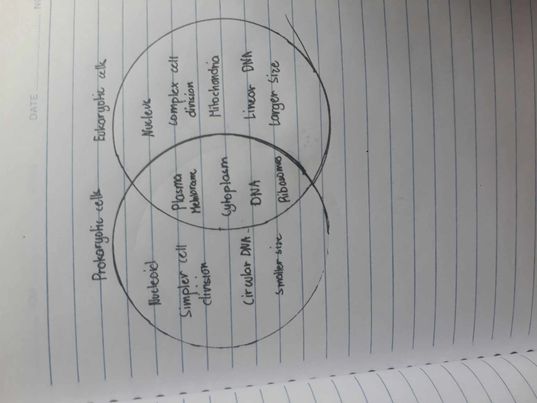 DATE
Prokaryotic cells
Eukaryotic cells
Nucleoid
Simpler cell
division
Circular DNA
Smaller size
Plasma
Membrane
Cytoplasm
DNA
Ribosomes
Nucleus
Complex cell
division
Mitochondria
Linear DNA
Larger Size